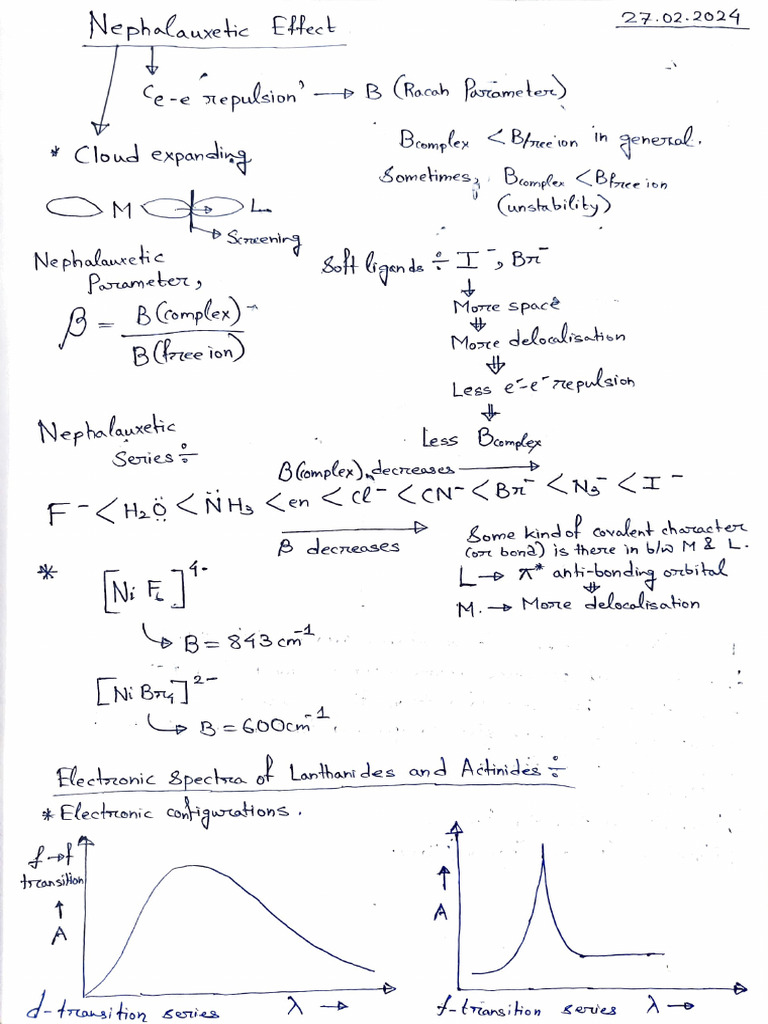 Nephalauxetic Effect
27.02.2024
'e-e repulsion' → B (Racah Parameter)
* Cloud expanding
Bcomplex < Bfree ion in general.
Sometimes, Bcomplex < Bfree ion
(unstability)
M L
Screening
Nephalauxetic
Parameter,
β = B(complex)
B(free ion)
Soft ligands ÷ I⁻, Br⁻
↓
More space
⇓
More delocalisation
⇓
Less e⁻-e⁻ repulsion
⇓
Less Bcomplex
Nephalauxetic
Series ÷
B(complex) decreases →
F⁻ < H₂Ö < N̈H₃ < en < Cl⁻ < CN⁻ < Br⁻ < N₃⁻ < I⁻
β decreases
Some kind of covalent character
(or bond) is there in b/w M & L.
L → π* anti-bonding orbital
⇓
M. → More delocalisation
* [Ni F₆]⁴⁻
↳ B = 843 cm⁻¹
[Ni Br₄]²⁻
↳ B = 600 cm⁻¹.
Electronic Spectra of Lanthanides and Actinides ÷
* Electronic configurations.
f→f
transition
↑
A
d-transition series λ →
↑
A
f-transition series λ →